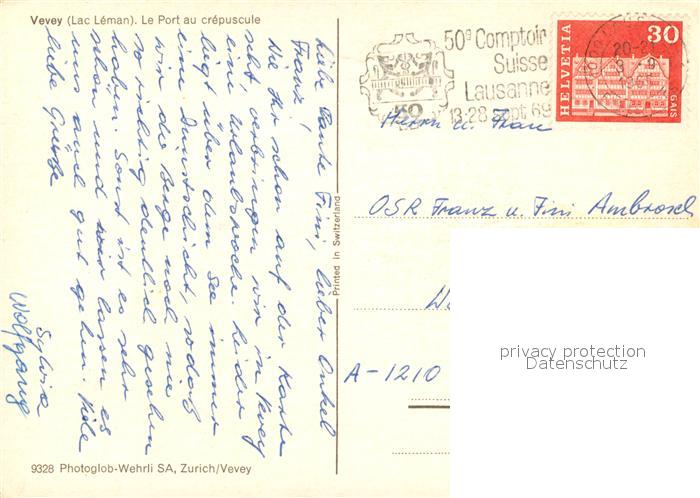 Vevey (Lac Léman). Le Port au crépuscule
Liebe Tante Fini, lieber Onkel
Franz!
Wie Ihr schon auf der Karte
seht, verbringen wir in Vevey
eine Urlaubswoche. Leider
liegt über dem See immer
eine Dunstschicht, sodaß
wir die Berge noch nie
so richtig deutlich gesehen
haben. Sonst ist es sehr
schön und wir lassen es
uns auch gut gehen. Viele
liebe Grüße
Sylvia
Wolfgang
9328 Photoglob-Wehrli SA, Zurich/Vevey
Printed in Switzerland
50e Comptoir
Suisse
Lausanne
13-28 Sept 69
HELVETIA
30
GAIS
20-21
Herrn u. Frau
OSR Franz u. Fini Ambrosch
A-1210
privacy protection
Datenschutz